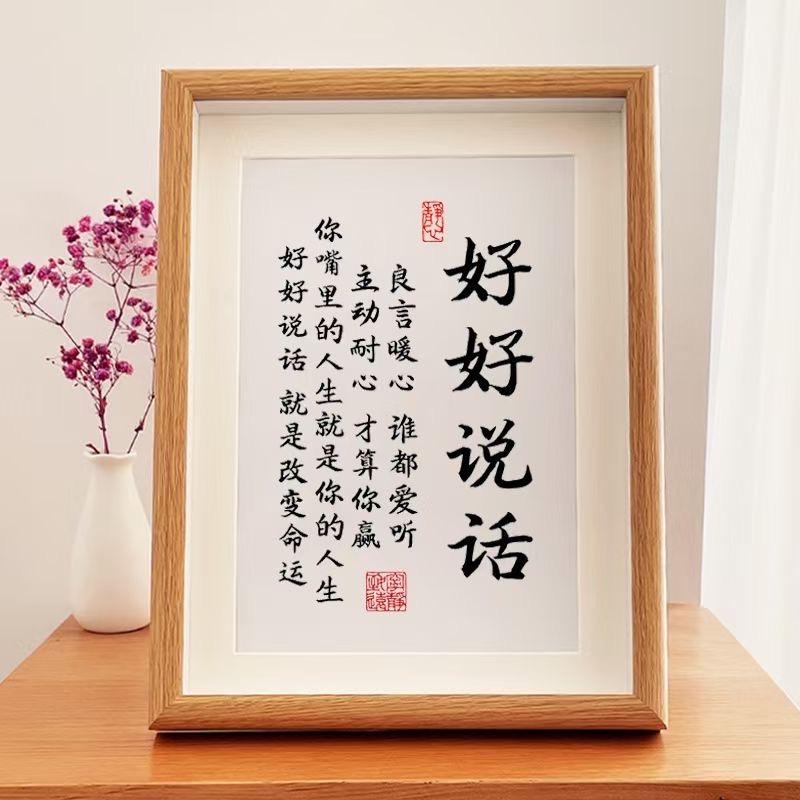 好好说话
静心
良言暖心 谁都爱听
主动耐心 才算你赢
你嘴里的人生就是你的人生
好好说话 就是改变命运
寧靜
致遠